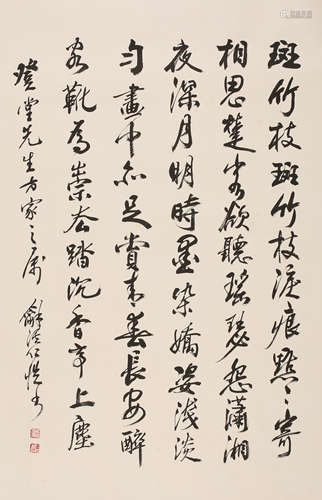 斑竹枝斑竹枝淚痕點〻寄
相思楚客欲聽瑤瑟怨瀟湘
夜深月明時墨染嬌姿淺淡
勻畫中亦足賞青春長安醉
客靴為祟去踏沉香亭上塵
堂先生方家之屬 龢溪仁愷書